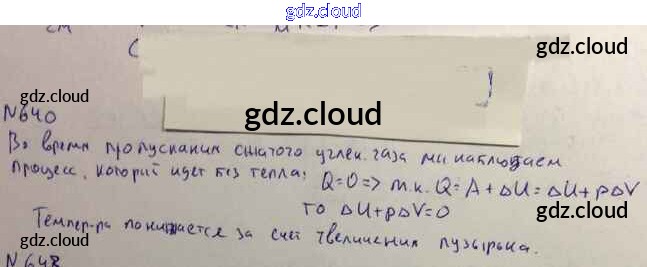 gdz.cloud
см
gdz.cloud
gdz.cloud
N640
gdz.cloud
Во время пропускания сжатого углек. газа мы наблюдаем
процесс, который идет без тепла: Q=0 => т.к. Q=A+ΔU=ΔU+pΔV
то ΔU+pΔV=0
Темпер-ра понижается за счет увеличения пузырька.
gdz.cloud
gdz.cloud
N648